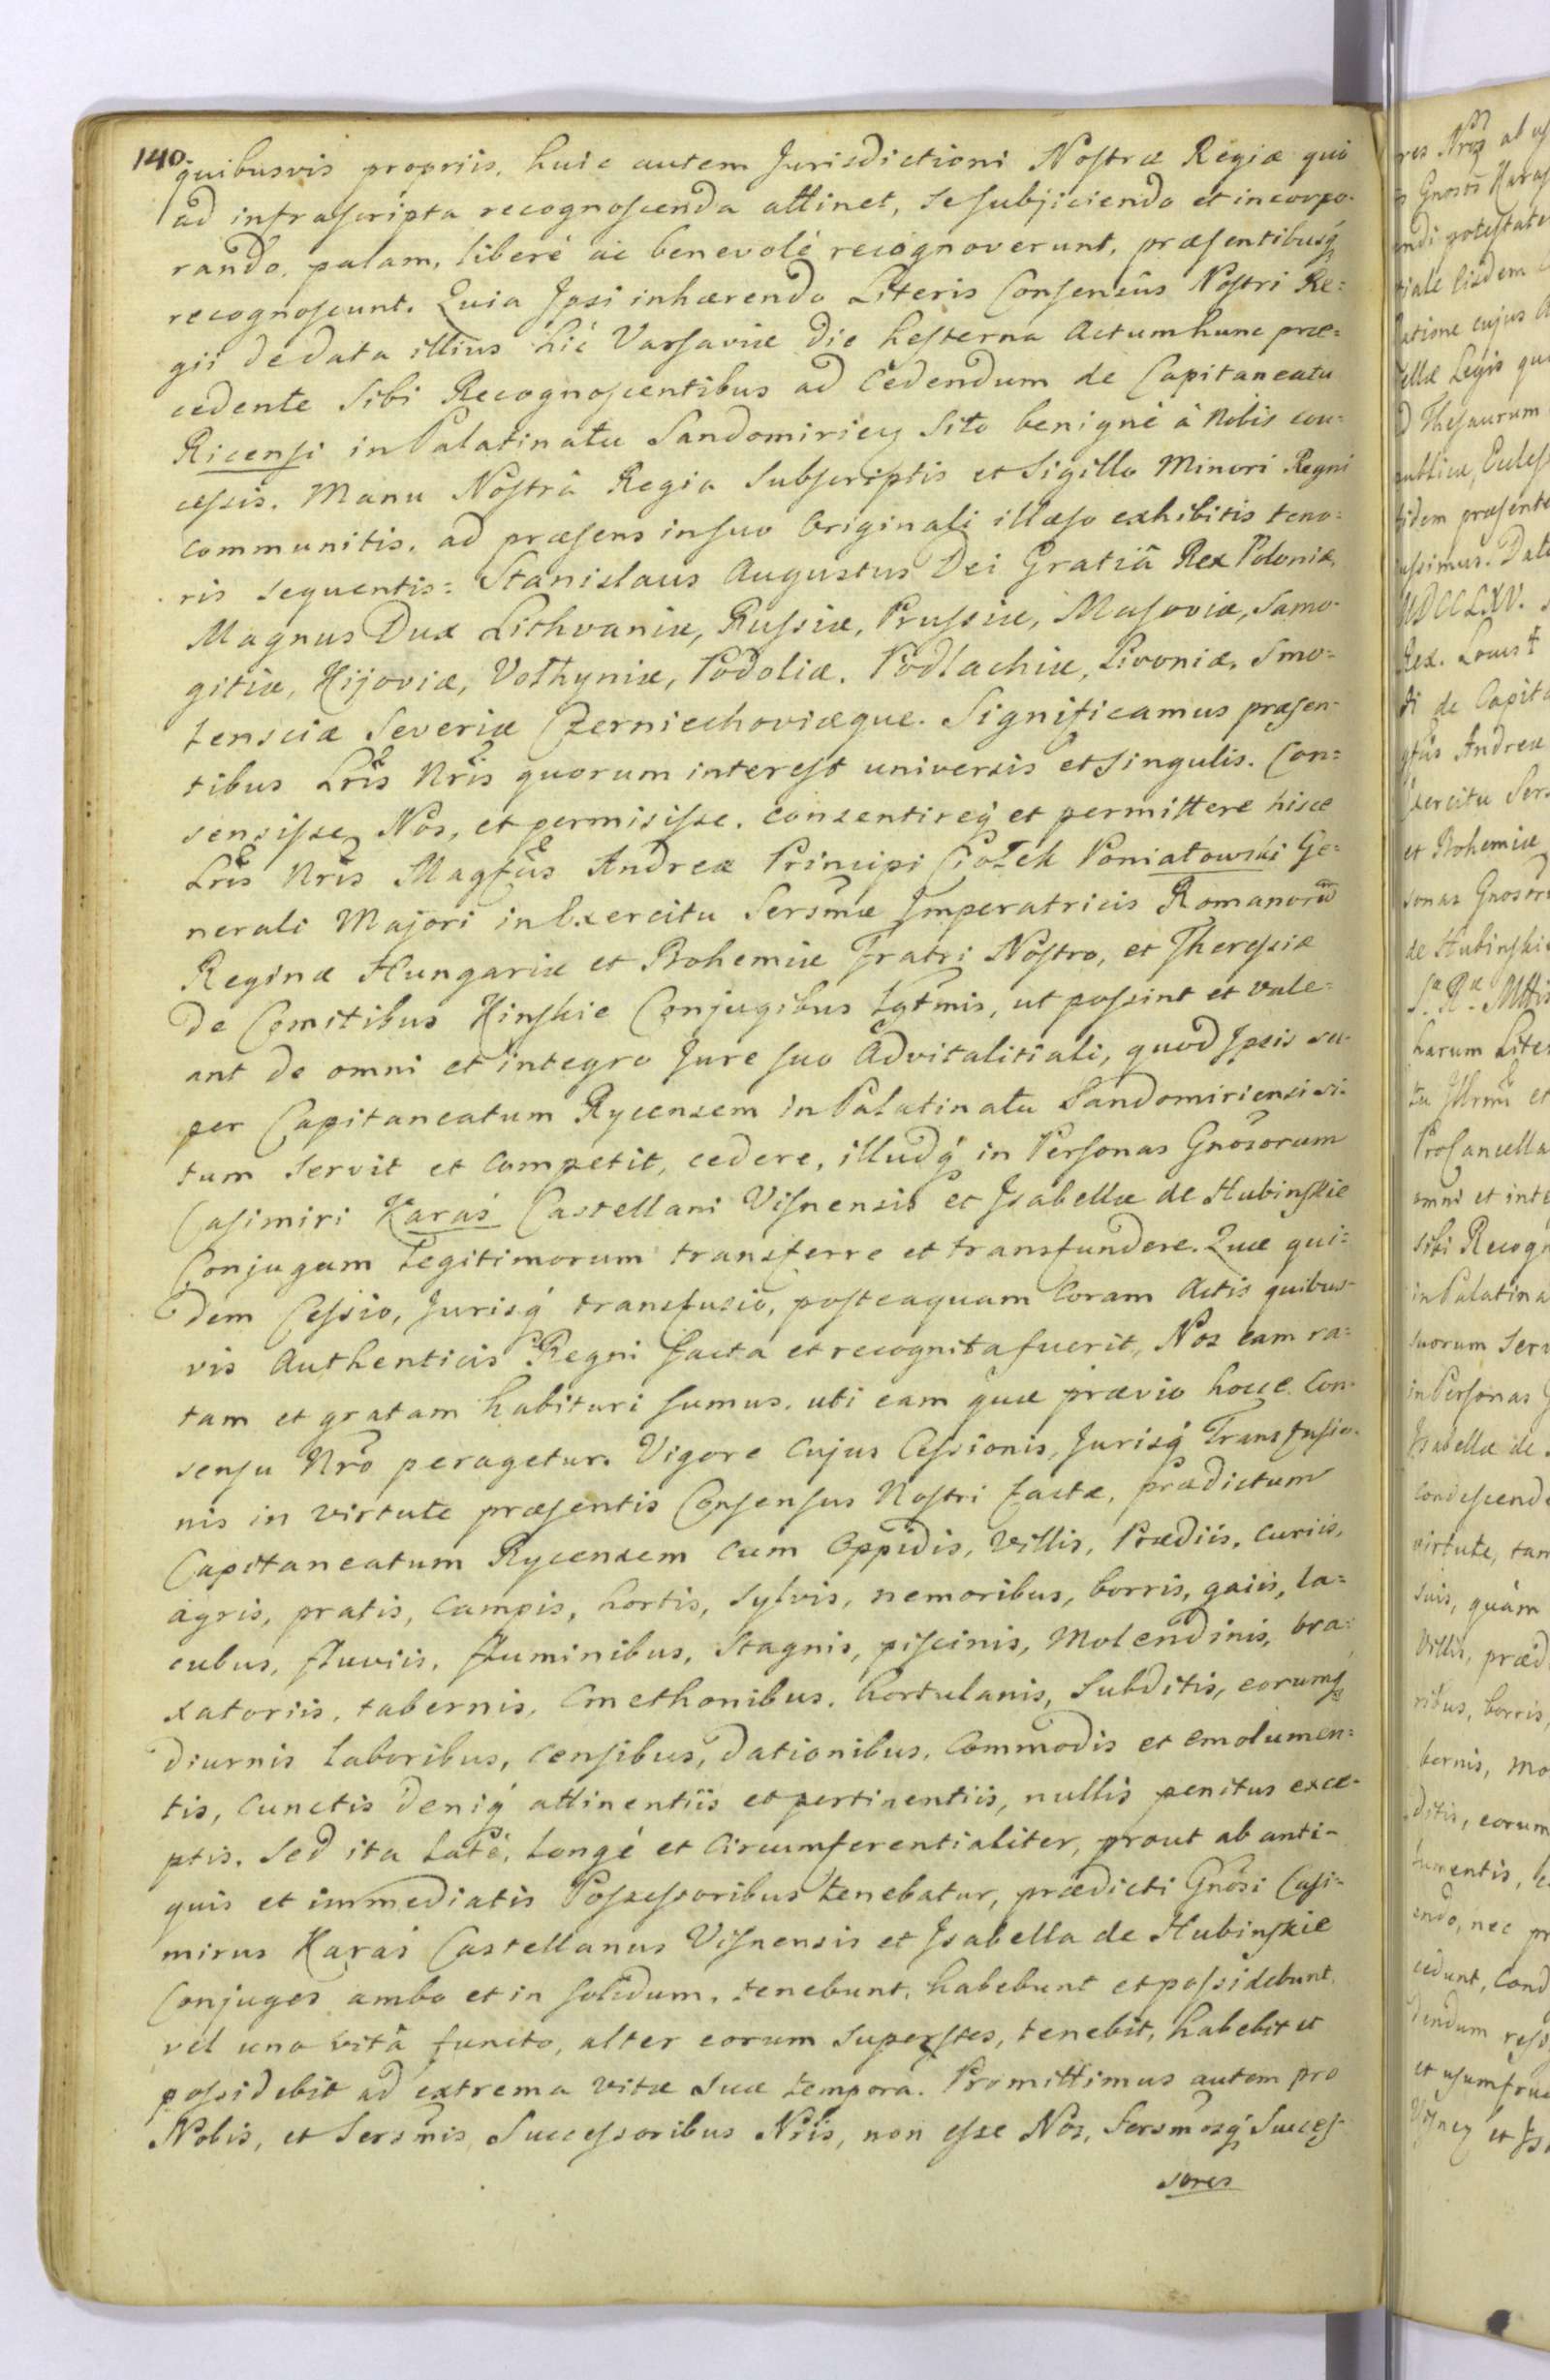 140.
quibusvis propriis, huic autem Jurisdictioni Nostræ Regiæ quò
ad infrascripta recognoscenda attinet, se subjiciendo et incorpo-
rando, palam, liberè ac benevolè recognoverunt, præsentibusq́
recognoscunt. Quia Ipsi inhærendo Literis Consensûs Nostri Re=
gii de data illius hìc Varsaviæ die hesterna Actum hunc præ=
cedente Sibi Recognoscentibus ad Cedendum de Capitaneatu
Ricensi in Palatinatu Sandomirien sito benignè à Nobis con=
cessis. Manu Nostrâ Regia Subscriptis et Sigillo Minori Regni
communitis, ad præsens in suo Originali illæso exhibitis teno=
ris sequentis: Stanislaus Augustus Dei Gratiâ Rex Poloniæ,
Magnus Dux Lithvaniæ, Russiæ, Prussiæ, Masoviæ, Samo-
gitiæ, Kijoviæ, Volhyniæ, Podoliæ, Podlachiæ, Livoniæ, Smo=
lensciæ Severiæ Czerniechoviæque. Significamus præsen-
tibus Lris Nris quorum interest universis et singulis. Con=
sensisse Nos, et permisisse, consentireq́ et permittere hisce
Lris Nris Magfcis Andreæ Principi Ciołek Poniatowski Ge=
nerali Majori in Exercitu Sersmæ Imperatricis Romanorũ
Reginæ Hungariæ et Bohemiæ Fratri Nostro, et Theresiæ
de Comitibus Kinskie Conjugibus Lgtmis, ut possint et vale=
ant de omni et integro Jure suo Advitalitiali, quod Ipsis su-
per Capitaneatum Rycensem in Palatinatu Sandomiriensi si-
tum servit et competit, cedere, illudq́ in Personas Gnosorum
Casimiri Karaś Castellani Visnensis et Isabellæ de Hubinskie
Conjugum Legitimorum transferre et transfundere. Quæ qui=
dem Cessio, Jurisq́ transfusio, posteaquam Coram Actis quibus-
vis Authenticis Regni facta et recognita fuerit, Nos eam ra=
tam et gratam habituri sumus, uti eam quæ prævio hocce Con-
sensu Nrõ peragetur. Vigore Cujus Cessionis, Jurisq́ Transfusio-
nis in virtute præsentis Consensus Nostri factæ, prædictum
Capitaneatum Rycensem cum Oppidis, Villis, Prædiis, curiis,
agris, pratis, campis, hortis, sylvis, nemoribus, borris, gaiis, la=
cubus, fluviis, fluminibus, stagnis, piscinis, Molendinis, bra=
xatoriis, tabernis, Cmethonibus, hortulanis, Subditis, eorumq́
diurnis laboribus, censibus, dationibus, Commodis et emolumen=
tis, cunctis deniq́ attinentiis et pertinentiis, nullis penitus exce-
ptis. Sed ita latè, longè et circumferentialiter, prout ab anti-
quis et immediatis Possessoribus tenebatur, prædicti Gnosi Casi-
mirus Karaś Castellanus Visnensis et Isabella de Hubinskie
Conjuges ambo et in solidum, tenebunt, habebunt et possidebunt,
vel uno vitâ functo, alter eorum superstes, tenebit, habebit et
possidebit ad extrema vitæ suæ tempora. Promittimus autem pro
Nobis, et Sersmis Successoribus Nris, non esse Nos, Sersmosq́ Succes-
sores